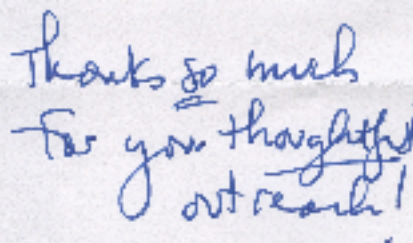 Thanks so much
for your thoughtful
outreach!